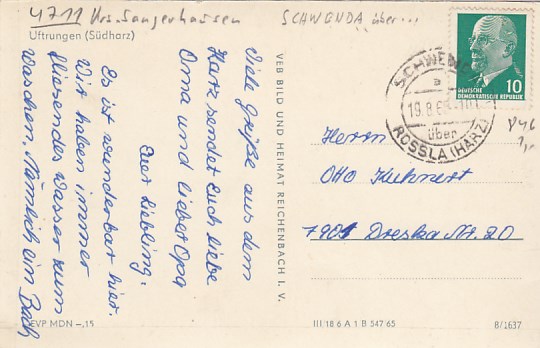 4711 Krs. Sangerhausen
SCHWENDA über...
Uftrungen (Südharz)
Viele Grüße aus dem
Harz sendet Euch liebe
Oma und lieber Opa
Euer Liebling.
Es ist wunderbar hier.
Wir haben immer
fliesendes Wasser zum
waschen. Nämlich im Bach
VEB BILD UND HEIMAT REICHENBACH I. V.
SCHWENDA
a
19.8.65
über
ROSSLA (HARZ)
DEUTSCHE
DEMOKRATISCHE REPUBLIK
10
Herrn
Otto Kuhnert
7901 Dreska Nr. 20
EVP MDN –,15
III 18 6 A 1 B 547 65
8/1637